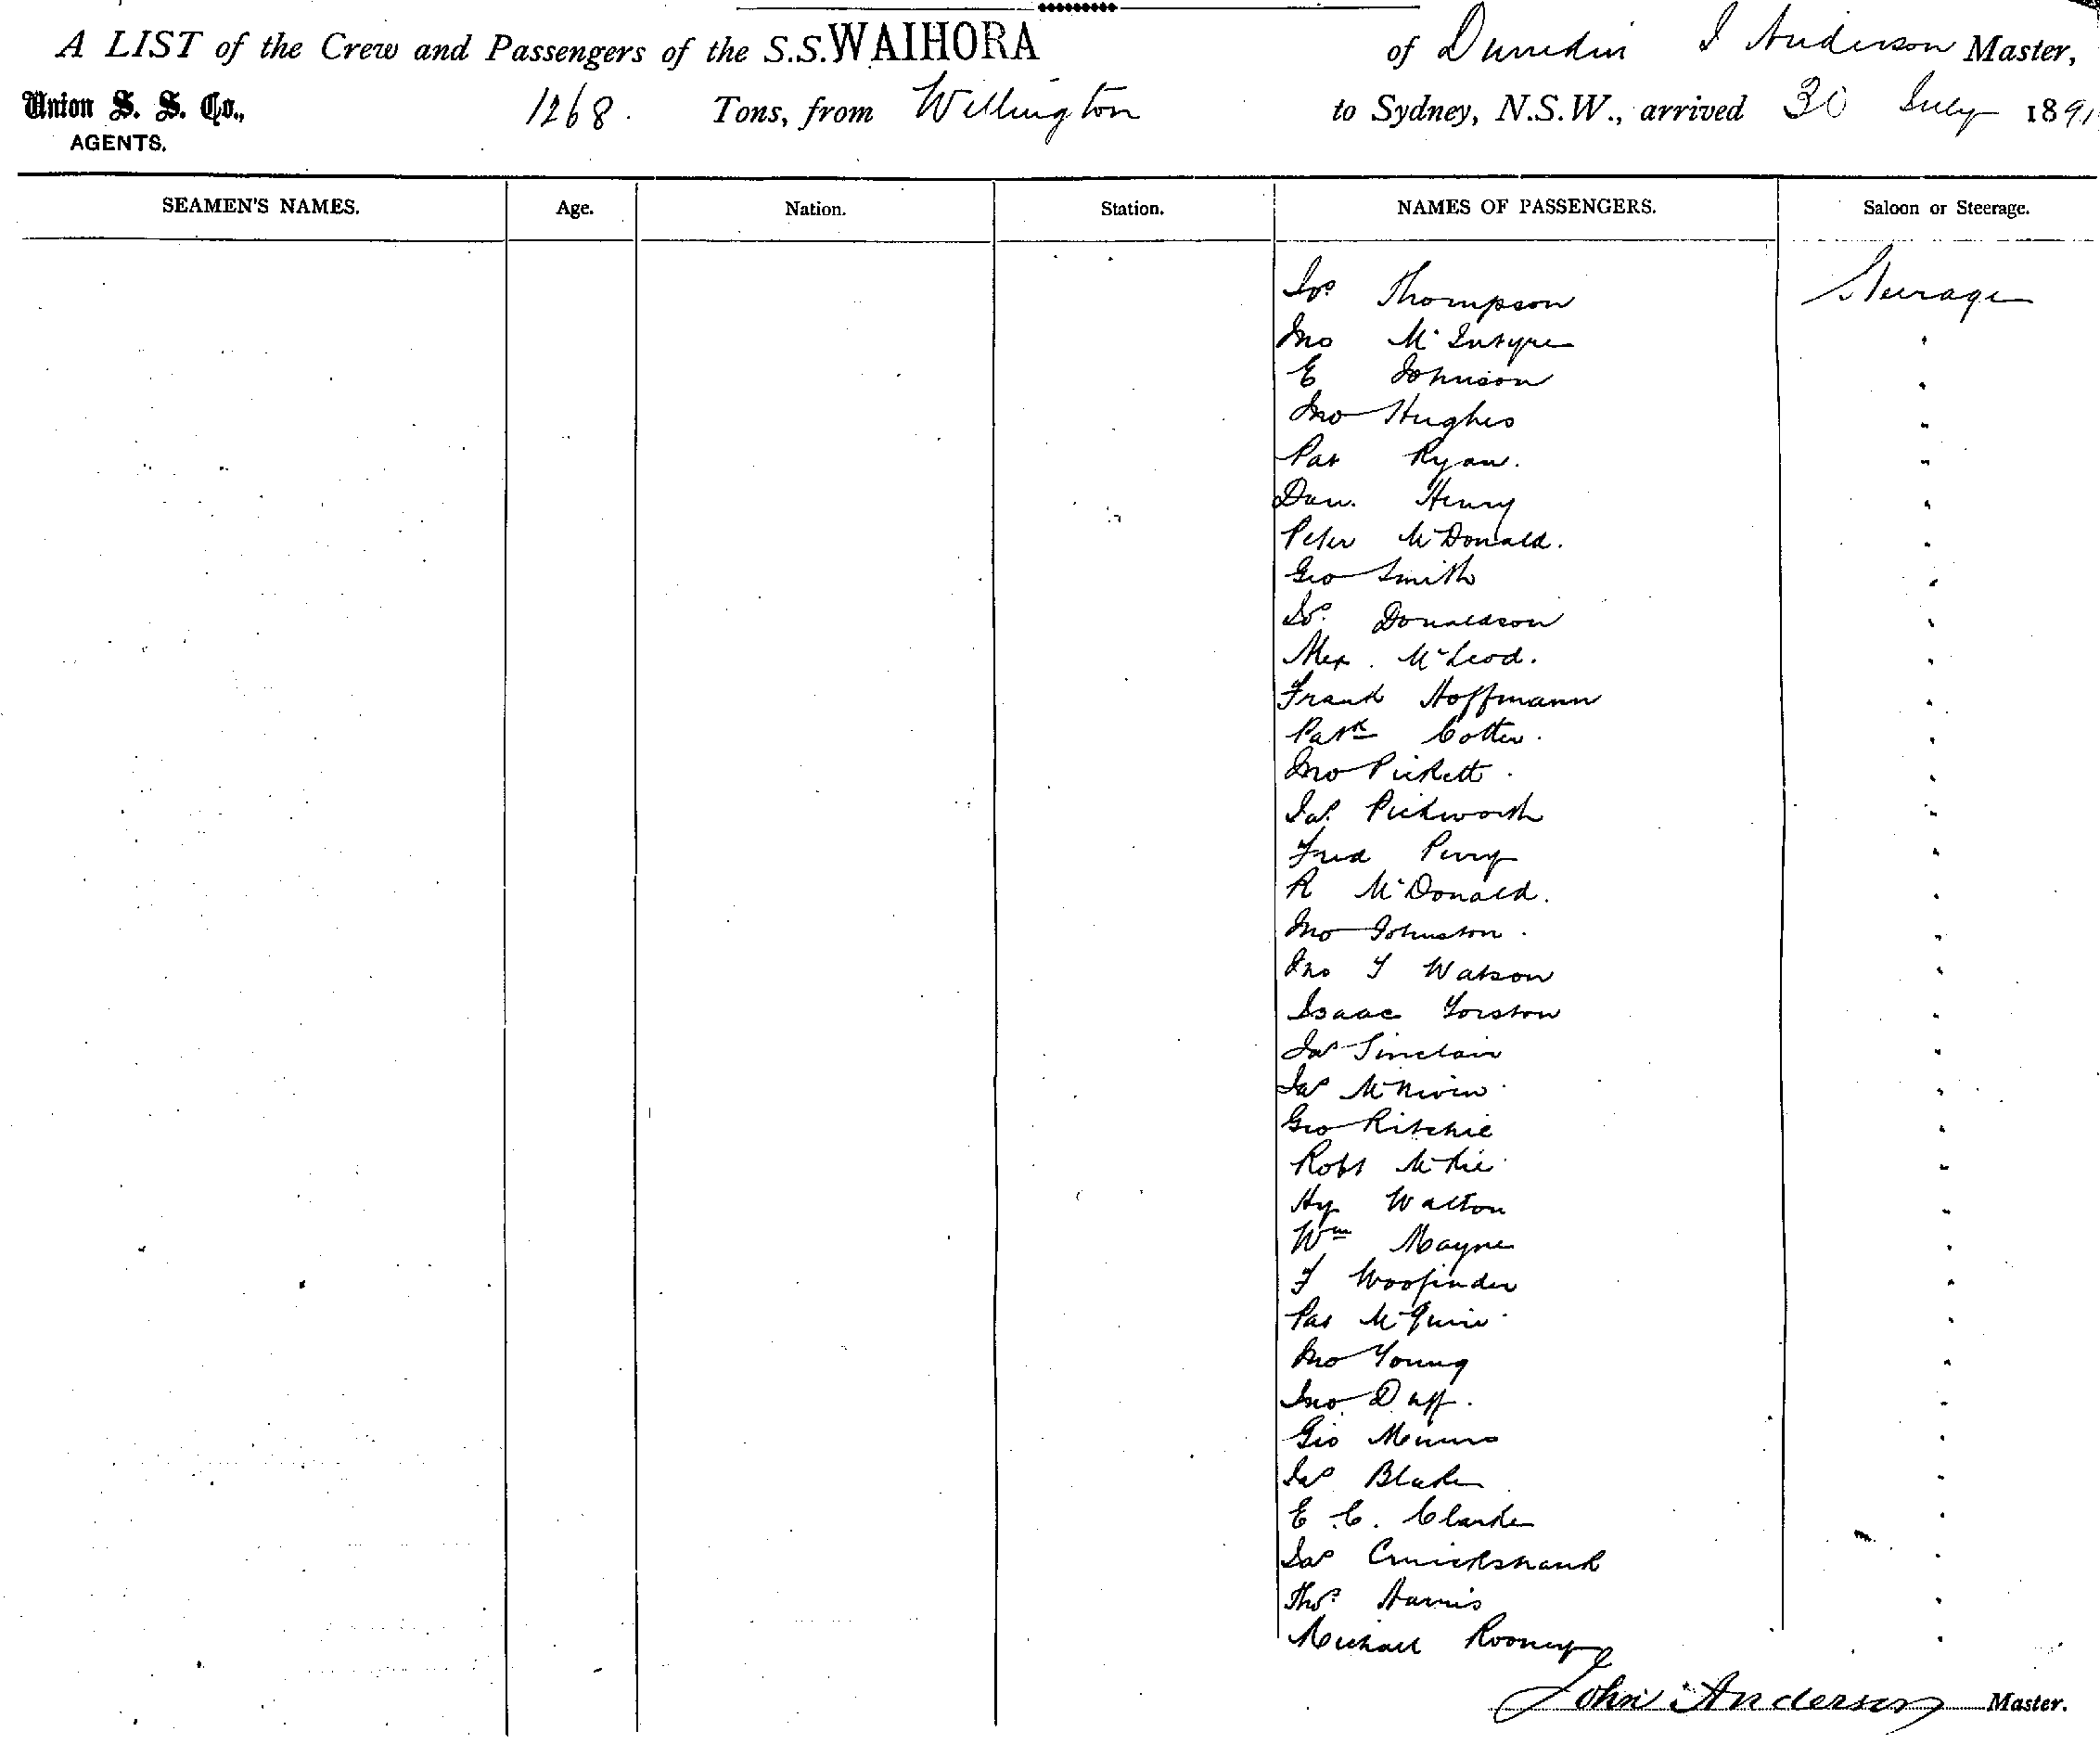 A LIST of the Crew and Passengers of the S.S. WAIHORA of Dunedin J Anderson Master,
Union S. S. Co., 1268. Tons, from Wellington to Sydney, N.S.W., arrived 30 July 1891
AGENTS.
SEAMEN'S NAMES. Age. Nation. Station. NAMES OF PASSENGERS. Saloon or Steerage.
Jos Thompson Steerage
Jno McIntyre "
E Johnson "
Jno Hughes "
Pat Ryan. "
Dan. Henry "
Peter McDonald. "
Geo Smith "
Jos. Donaldson "
Alex. McLeod. "
Frank Hoffmann "
Patk Cotter. "
Jno Pickett. "
Jas. Pickworth "
Fred Perry "
R McDonald. "
Jno Johnston. "
Jno T Watson "
Isaac Yorston "
Jas Sinclair "
Jas McNiven "
Geo Ritchie "
Robt McKie "
Hy Walton "
Wm Mayne "
F Woofinder "
Pat McGuire "
Jno Young "
Jno Duff. "
Geo Munro "
Jas Blake "
E. C. Clarke "
Jas Cruickshank "
Thos. Harris "
Michael Rooney "
John Anderson Master.